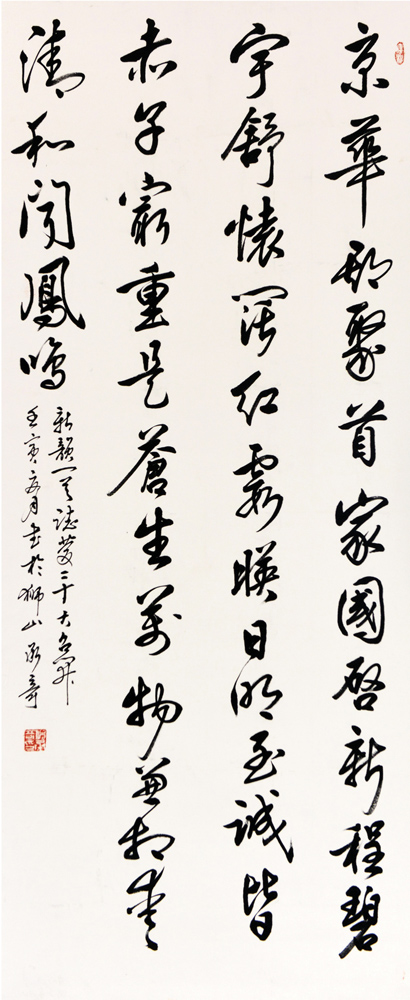 京華聚首家國啓新程碧
宇舒懷闊紅霞暎日明至誠皆
赤子最重是蒼生萬物兼相愛
清和聞鳳鳴
新韻一首誌慶二十大召開
壬寅亥月書於獅山